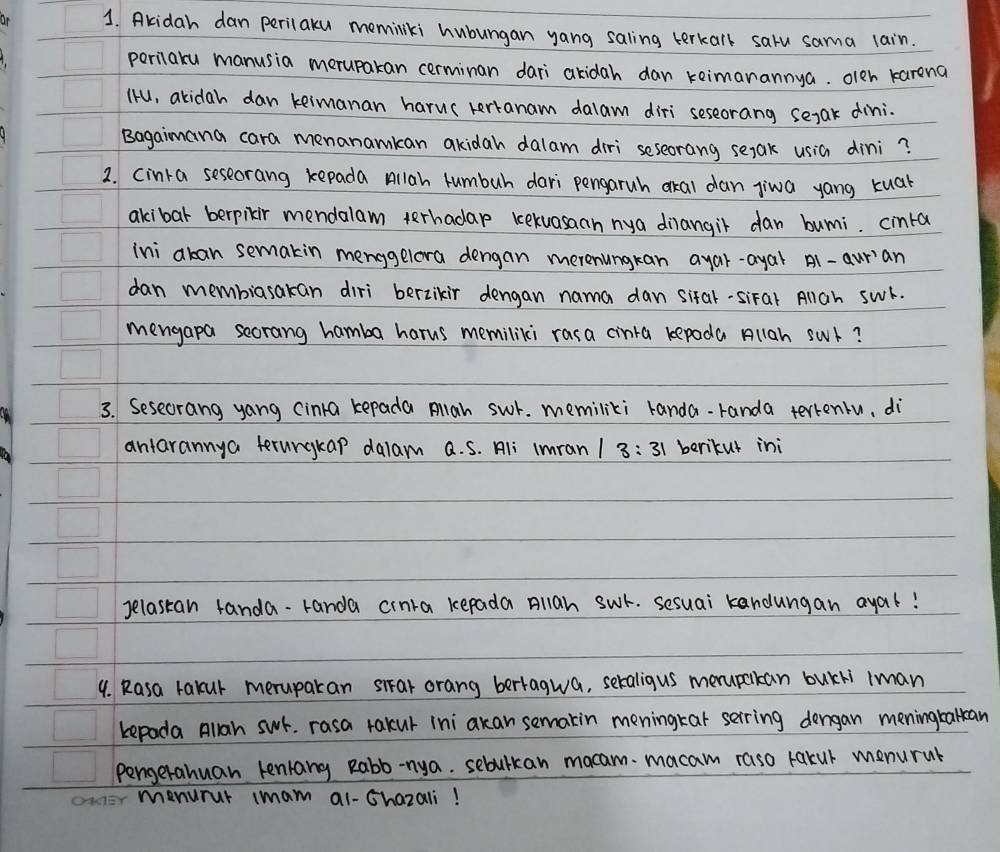 1. Akidah dan perilaku memiliki hubungan yang saling terkait satu sama lain.
perilaku manusia merupakan cerminan dari akidah dan keimanannya. oleh karena
itu, akidah dan keimanan harus tertanam dalam diri seseorang sejak dini.
Bagaimana cara menanamkan akidah dalam diri seseorang sejak usia dini ?
2. Cinta seseorang kepada Allah tumbuh dari pengaruh akal dan jiwa yang kuat
akibat berpikir mendalam terhadap kekuasaan nya dilangit dan bumi. cinta
ini akan semakin menggelora dengan merenungkan ayat-ayat Al-Qur'an
dan membiasakan diri berzikir dengan nama dan sifat-sifat Allah swt.
mengapa seorang hamba harus memiliki rasa cinta kepada Allah swt ?
3. Seseorang yang cinta kepada Allah swt. memiliki tanda-tanda tertentu, di
antarannya terungkap dalam Q.S. Ali Imran / 3:31 berikut ini
Jelaskan tanda-tanda cinta kepada Allah swt. sesuai kandungan ayat !
4. Rasa takut merupakan sifat orang bertaqwa, sekaligus merupakan bukti iman
kepada Allah swt. rasa takut ini akan semakin meningkat seiring dengan meningkatkan
pengetahuan tentang Rabb-nya. sebutkan macam-macam rasa takut menurut
OKEY menurut imam al-Ghazali !